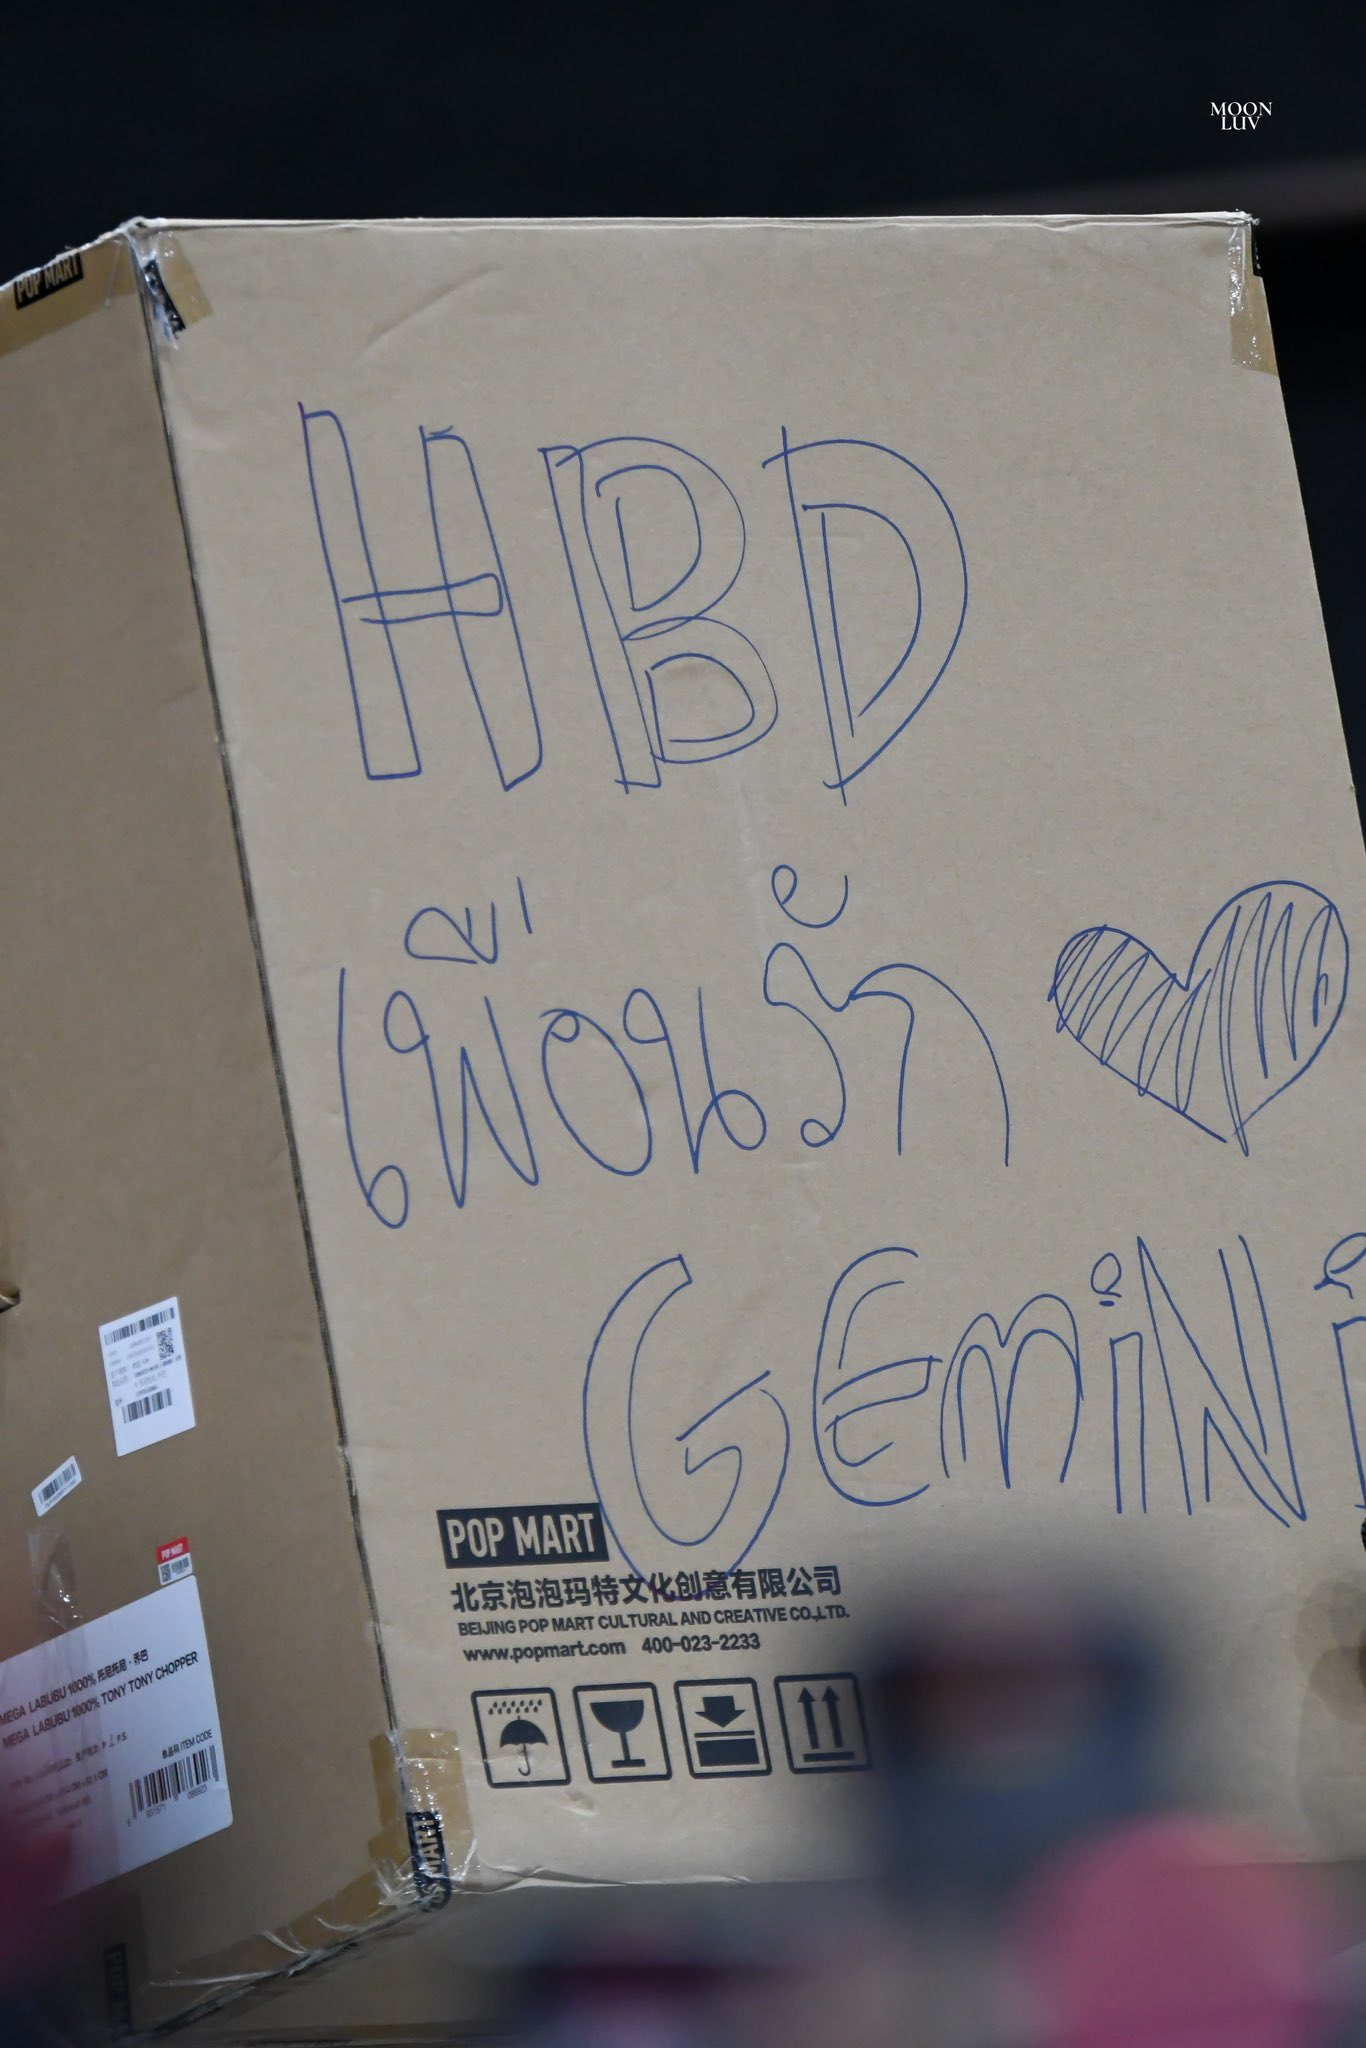 MOON
LUV
POP MART
HBD
เพื่อนรัก
GEMINI
POP MART
北京泡泡玛特文化创意有限公司
BEIJING POP MART CULTURAL AND CREATIVE CO.,LTD.
www.popmart.com 400-023-2233
POP MART
MEGA LABUBU 1000% 托尼托尼·乔巴
MEGA LABUBU 1000% TONY TONY CHOPPER
ITEM CODE
MART